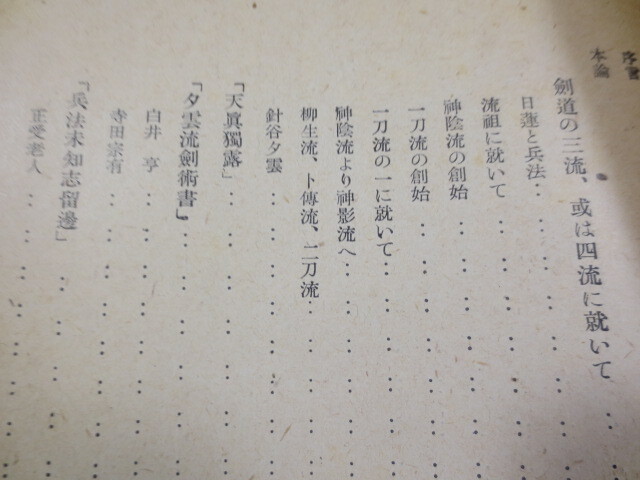 序言
本論
劍道の三流、或は四流に就いて
日蓮と兵法
流祖に就いて
神陰流の創始
一刀流の創始
一刀流の一に就いて
神陰流より神影流へ
柳生流、卜傳流、二刀流
針谷夕雲
「天眞獨露」
「夕雲流劍術書」
白井亨
寺田宗有
「兵法未知志留邊」
正受老人